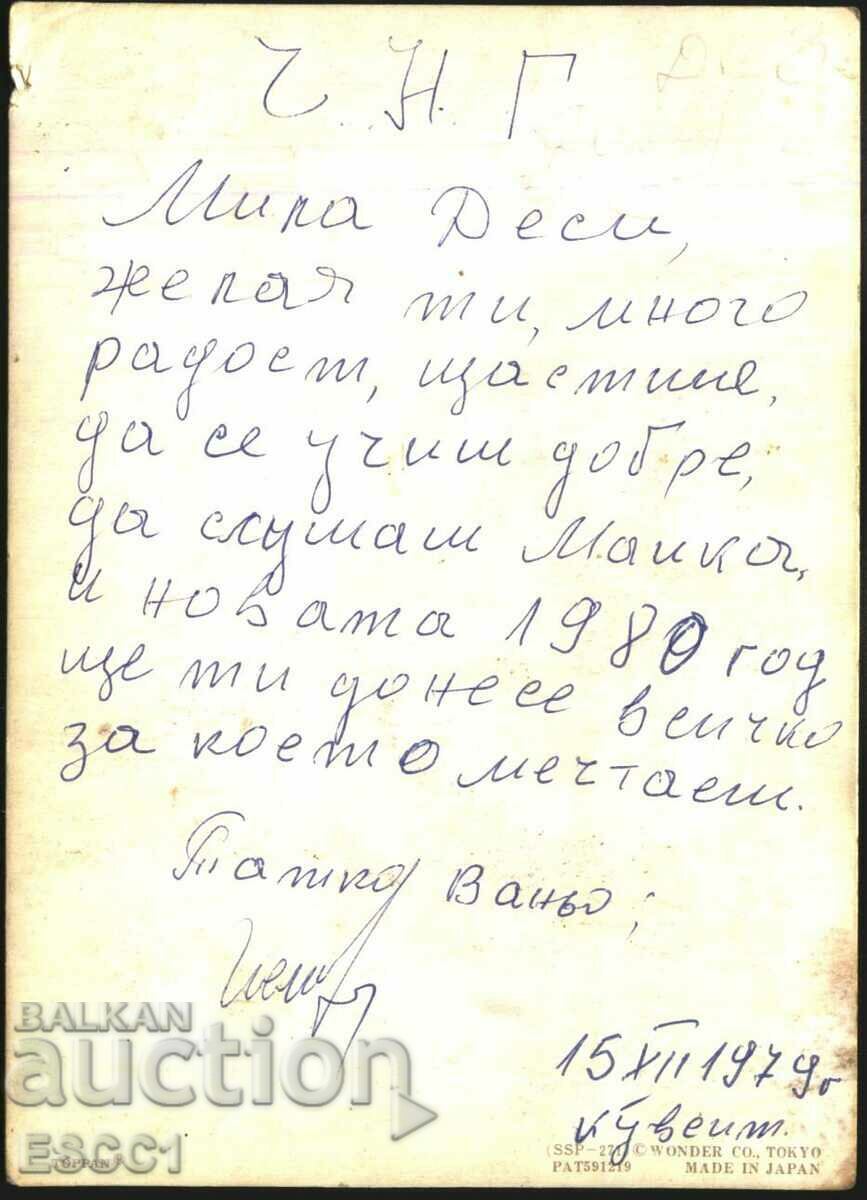 Ч. Н. Г
Мила Деси,
желая ти, много
радост, щастие,
да се учиш добре,
да слушаш Маика,
и новата 1980 год
ще ти донесе всичко
за което мечтаеш.
Татко Ваньо;
15 XII 1979г
Кувеит.
BALKAN
auction
ESCC1
TOPPAN®
(SSP-271) © WONDER CO., TOKYO
PAT591219 MADE IN JAPAN